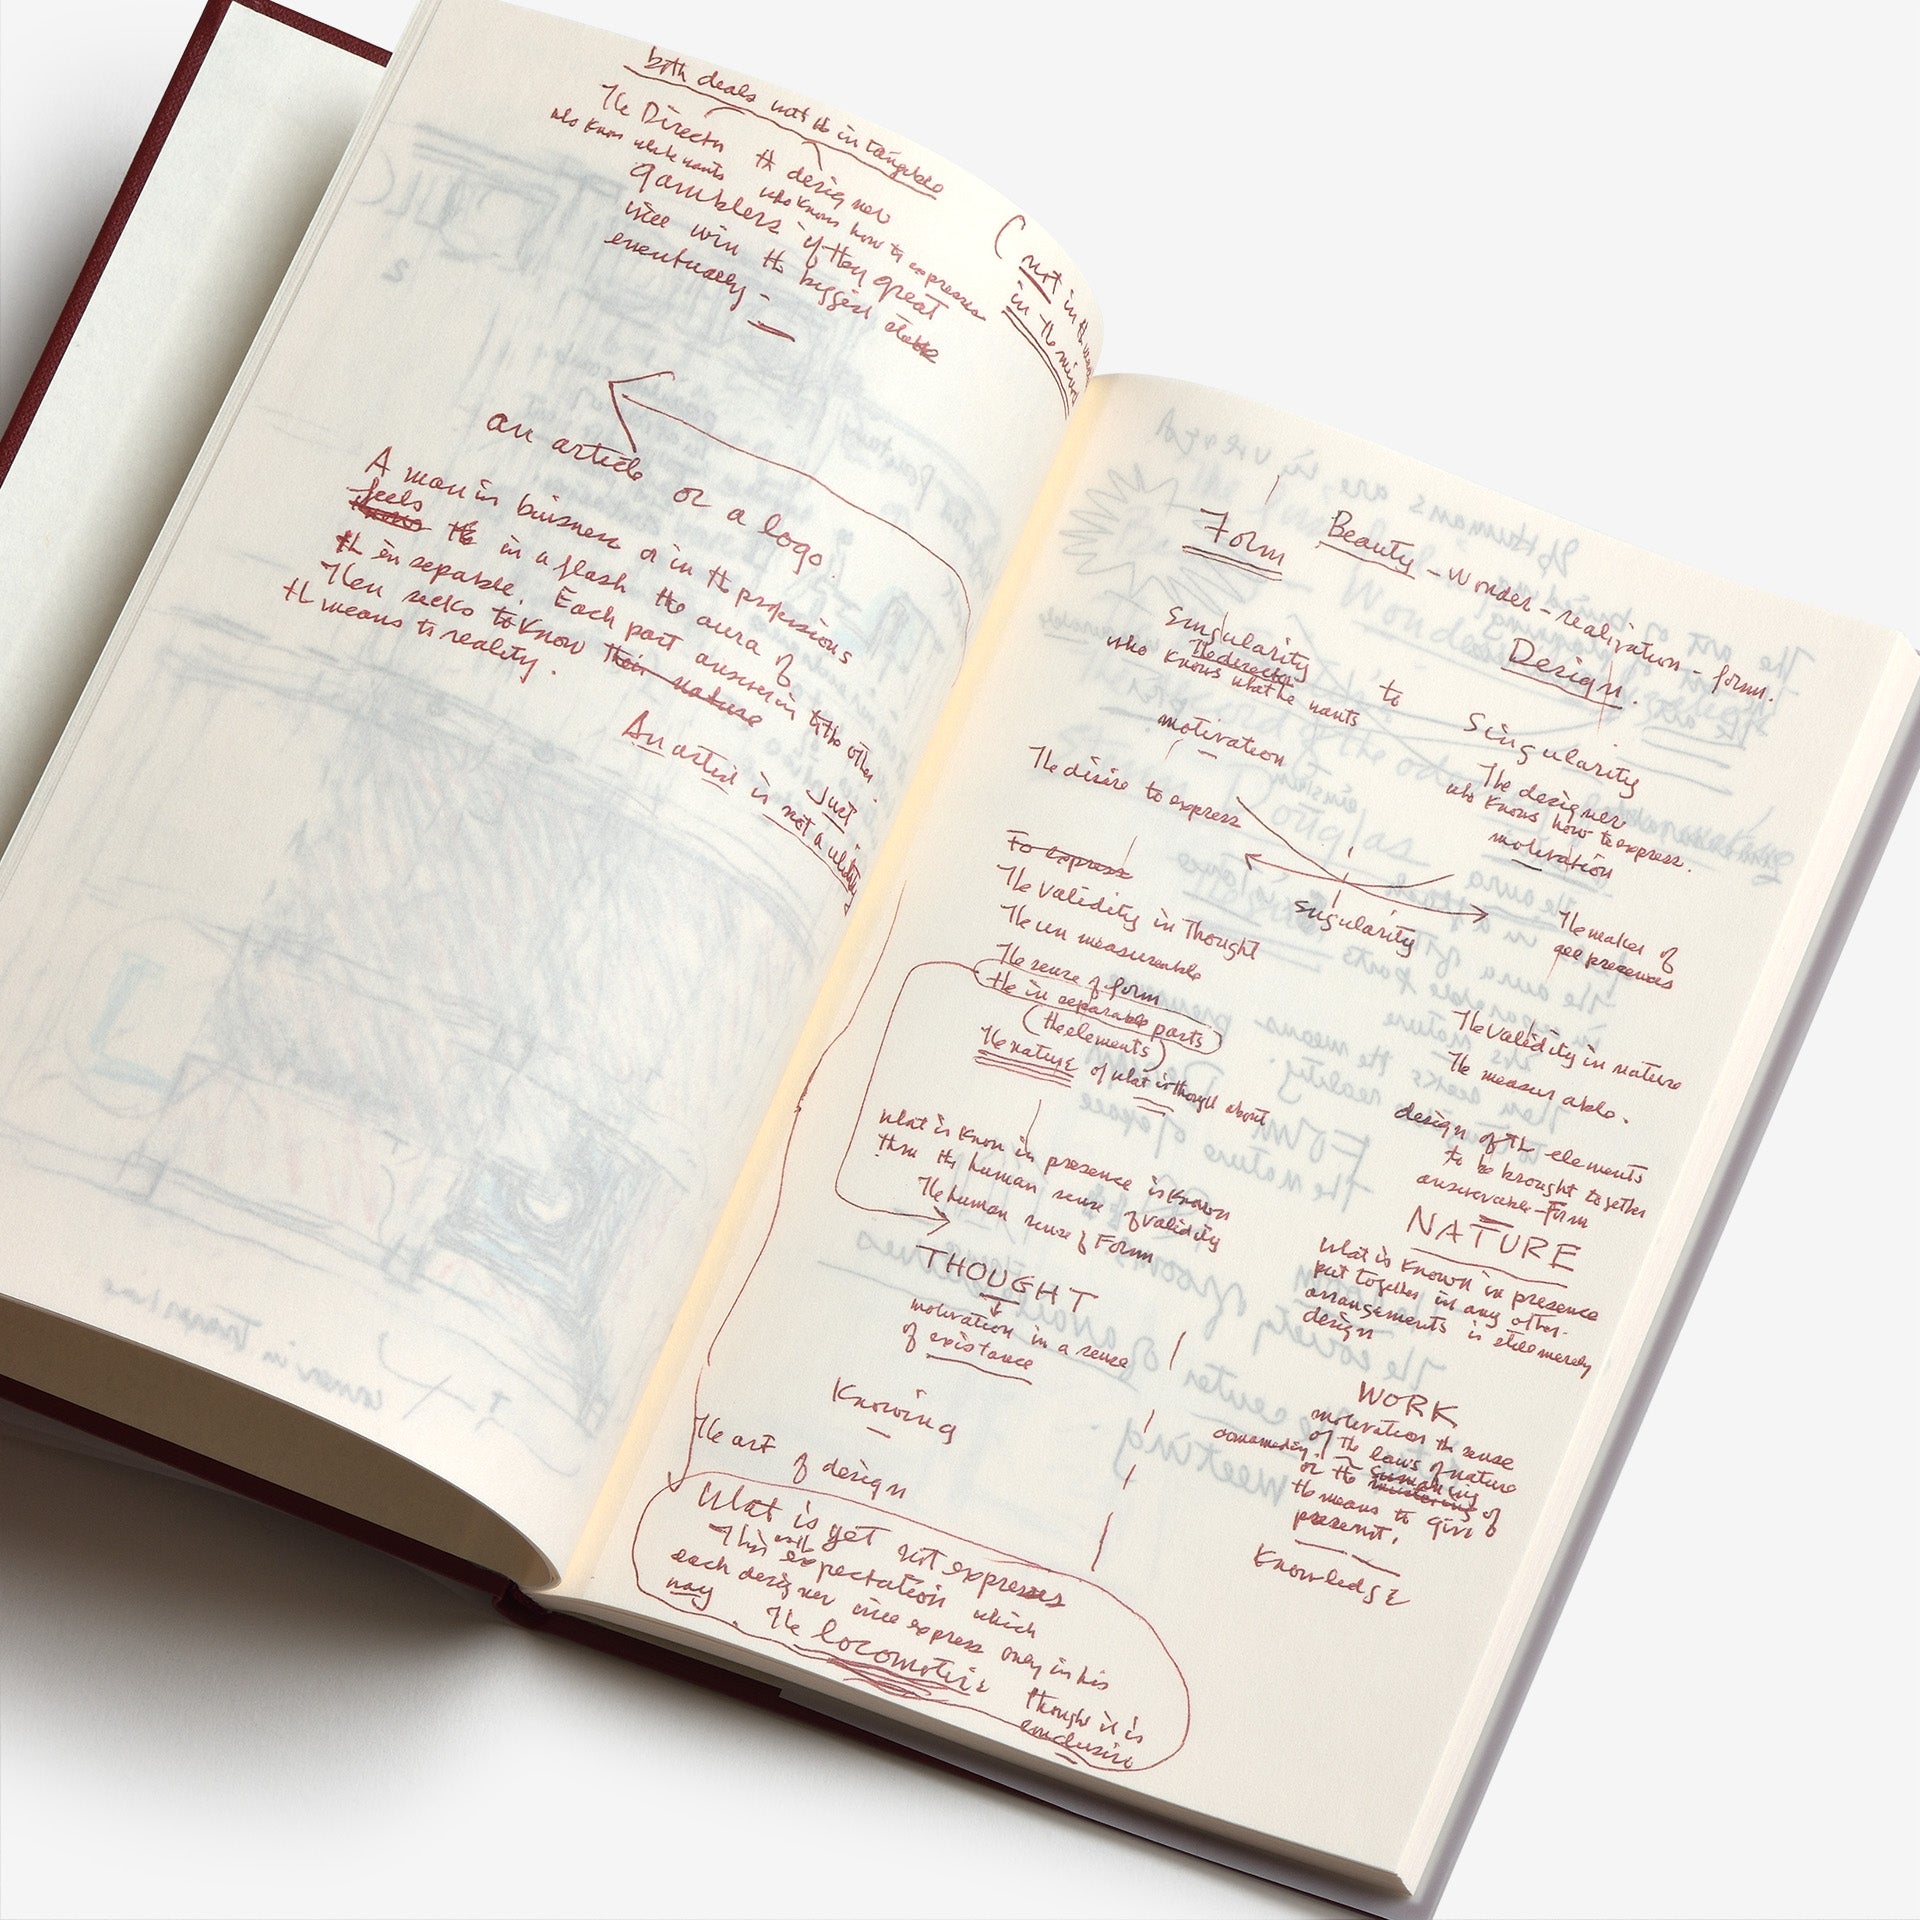 both deals with the in tangible
The Director
who knows what he wants
the designer
who knows how to express
gamblers if they great
will win the biggest
eventually -
( not in the
in the mind
an article or a logo
A man in buisness or in the professions
feels the in a flash the aura of
the in separable. Each part answerin to the other.
Then seeks to know their nature
the means to reality.
Just
An artist is not a
Form
Beauty - Wonder - realization - form.
Design.
Singularity
The director
who knows what he wants
to
Singularity
The designer
who knows how to express.
motivation
motivation
The desire to express
singularity
The maker of
all presences
To express
The validity in Thought
The un measureable
The sense of form
the in separable parts
(the elements)
The nature of what is though about
The validity in nature
The measur able.
design of the elements
to be brought together
answerable - Form
What is known in presence is known
thru the human sense of validity
The human sense of Form
THOUGHT
motivation in a sense
of existance
NATURE
What is known in presence
put together in any other
arrangements is still merely
design
Knowing
WORK
motivation the sense
of the laws of nature
or the of
the means to give
present.
Knowledge
The art
of design
What is yet not express
This with expectation which
each designer will express only in his
way. The locomotive
though it is